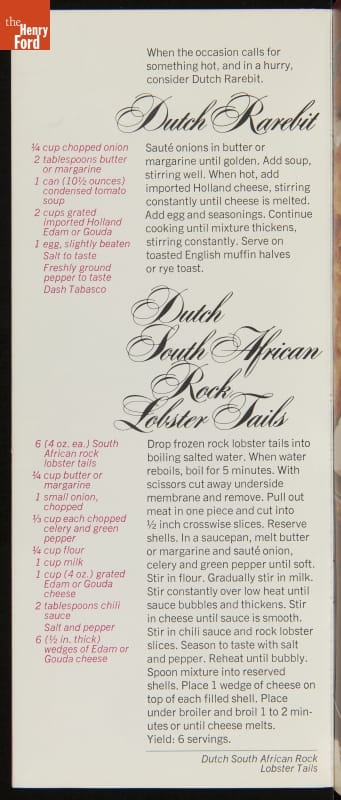 the
Henry
Ford
When the occasion calls for
something hot, and in a hurry,
consider Dutch Rarebit.
Dutch Rarebit
¼ cup chopped onion
2 tablespoons butter
or margarine
1 can (10½ ounces)
condensed tomato
soup
2 cups grated
imported Holland
Edam or Gouda
1 egg, slightly beaten
Salt to taste
Freshly ground
pepper to taste
Dash Tabasco
Sauté onions in butter or
margarine until golden. Add soup,
stirring well. When hot, add
imported Holland cheese, stirring
constantly until cheese is melted.
Add egg and seasonings. Continue
cooking until mixture thickens,
stirring constantly. Serve on
toasted English muffin halves
or rye toast.
Dutch
South African
Rock
Lobster Tails
6 (4 oz. ea.) South
African rock
lobster tails
¼ cup butter or
margarine
1 small onion,
chopped
⅓ cup each chopped
celery and green
pepper
¼ cup flour
1 cup milk
1 cup (4 oz.) grated
Edam or Gouda
cheese
2 tablespoons chili
sauce
Salt and pepper
6 (½ in. thick)
wedges of Edam or
Gouda cheese
Drop frozen rock lobster tails into
boiling salted water. When water
reboils, boil for 5 minutes. With
scissors cut away underside
membrane and remove. Pull out
meat in one piece and cut into
½ inch crosswise slices. Reserve
shells. In a saucepan, melt butter
or margarine and sauté onion,
celery and green pepper until soft.
Stir in flour. Gradually stir in milk.
Stir constantly over low heat until
sauce bubbles and thickens. Stir
in cheese until sauce is smooth.
Stir in chili sauce and rock lobster
slices. Season to taste with salt
and pepper. Reheat until bubbly.
Spoon mixture into reserved
shells. Place 1 wedge of cheese on
top of each filled shell. Place
under broiler and broil 1 to 2 min-
utes or until cheese melts.
Yield: 6 servings.
Dutch South African Rock
Lobster Tails